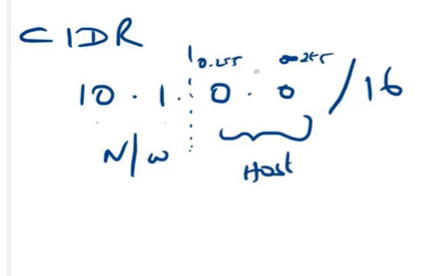 CIDR
0.255 0-255
10.1.0.0/16
N/W Host